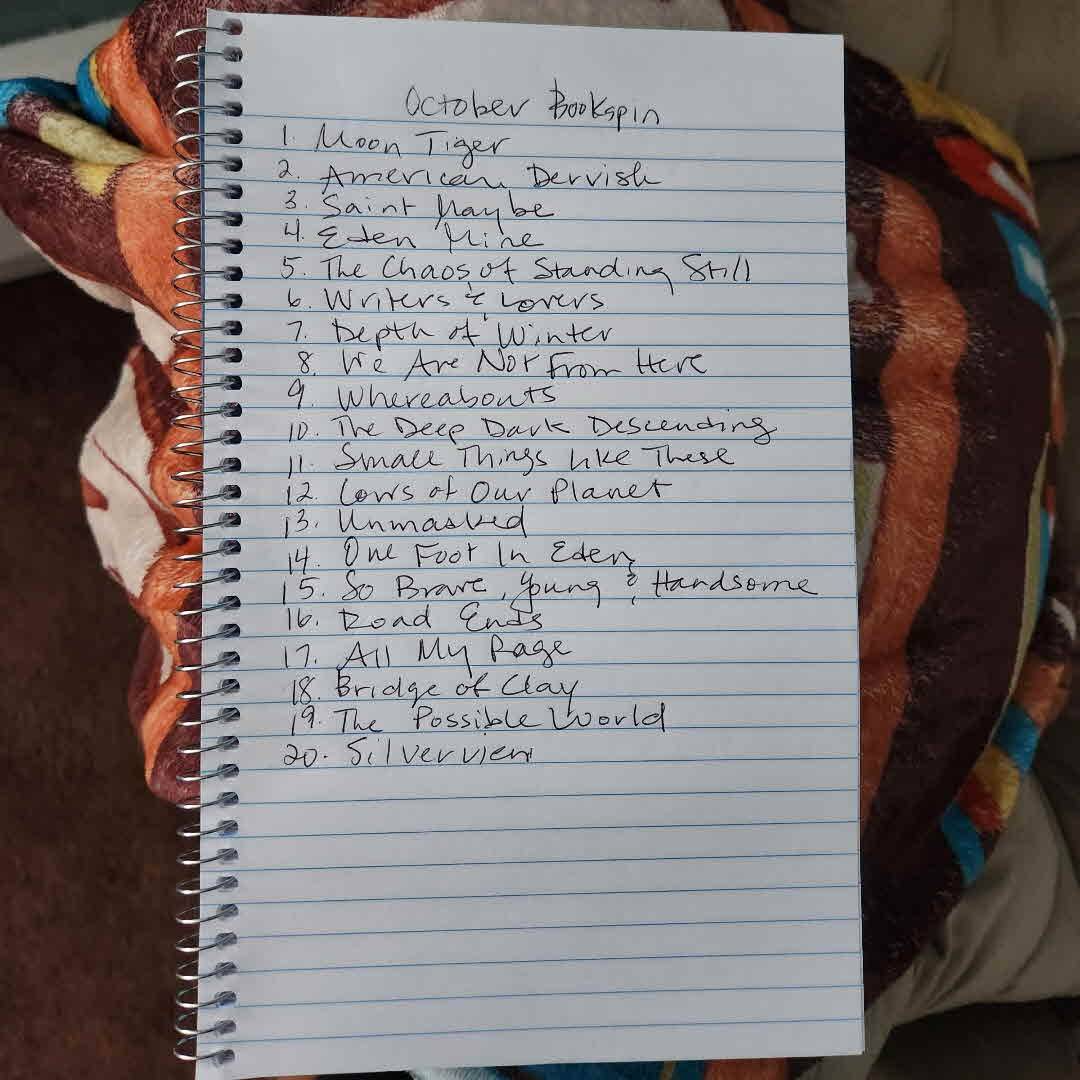 October Bookspin
1. Moon Tiger
2. American Dervish
3. Saint Maybe
4. Eden Mine
5. The Chaos of Standing Still
6. Writers & Lovers
7. Depth of Winter
8. We Are Not From Here
9. Whereabouts
10. The Deep Dark Descending
11. Small Things Like These
12. Cows of Our Planet
13. Unmasked
14. One Foot In Eden
15. So Brave, Young & Handsome
16. Road Ends
17. All My Rage
18. Bridge of Clay
19. The Possible World
20. Silverview